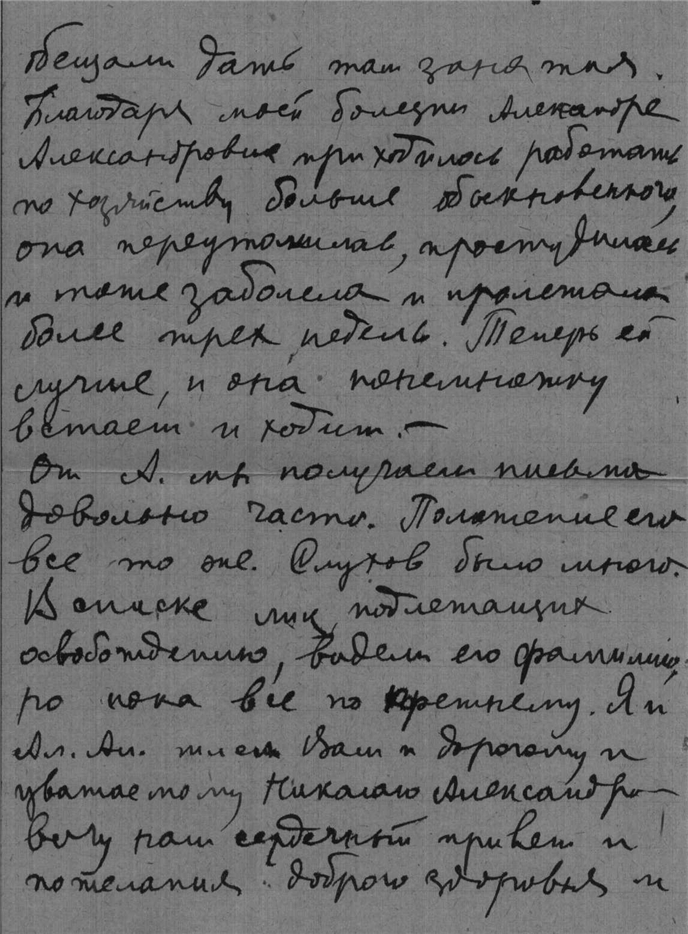 обещали дать там занятия.
Благодаря моей болезни Александре
Александровне приходилось работать
по хозяйству больше обыкновенного,
она переутомилась, простудилась
и тоже заболела и пролежала
более трех недель. Теперь ей
лучше, и она понемножку
встает и ходит. —
От А. мы получаем письма
довольно часто. Положение его
все то же. Слухов было много.
В списке лиц, подлежащих
освобождению, видели его фамилию,
но пока все по прежнему. Я и
Ал. Ал. шлем Вам и дорогому и
уважаемому Николаю Александро-
вичу наш сердечный привет и
пожелания доброго здоровья и